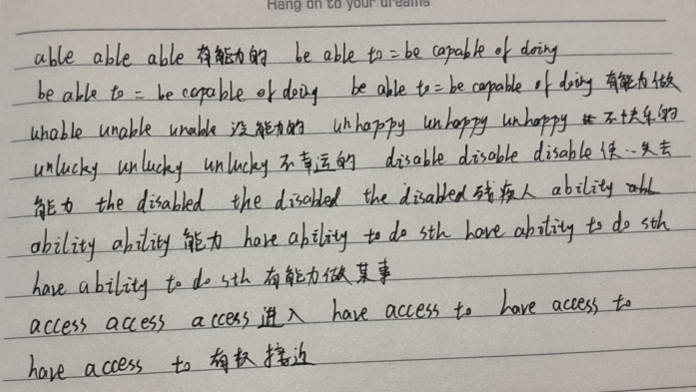 Hang on to your dreams
able able able 有能力的 be able to = be capable of doing
be able to = be capable of doing be able to = be capable of doing 有能力做
unable unable unable 没能力的 unhappy unhappy unhappy 不快乐的
unlucky unlucky unlucky 不幸运的 disable disable disable 使…失去
能力 the disabled the disabled the disabled 残疾人 ability
ability ability 能力 have ability to do sth have ability to do sth
have ability to do sth 有能力做某事
access access access 进入 have access to have access to
have access to 有权接近